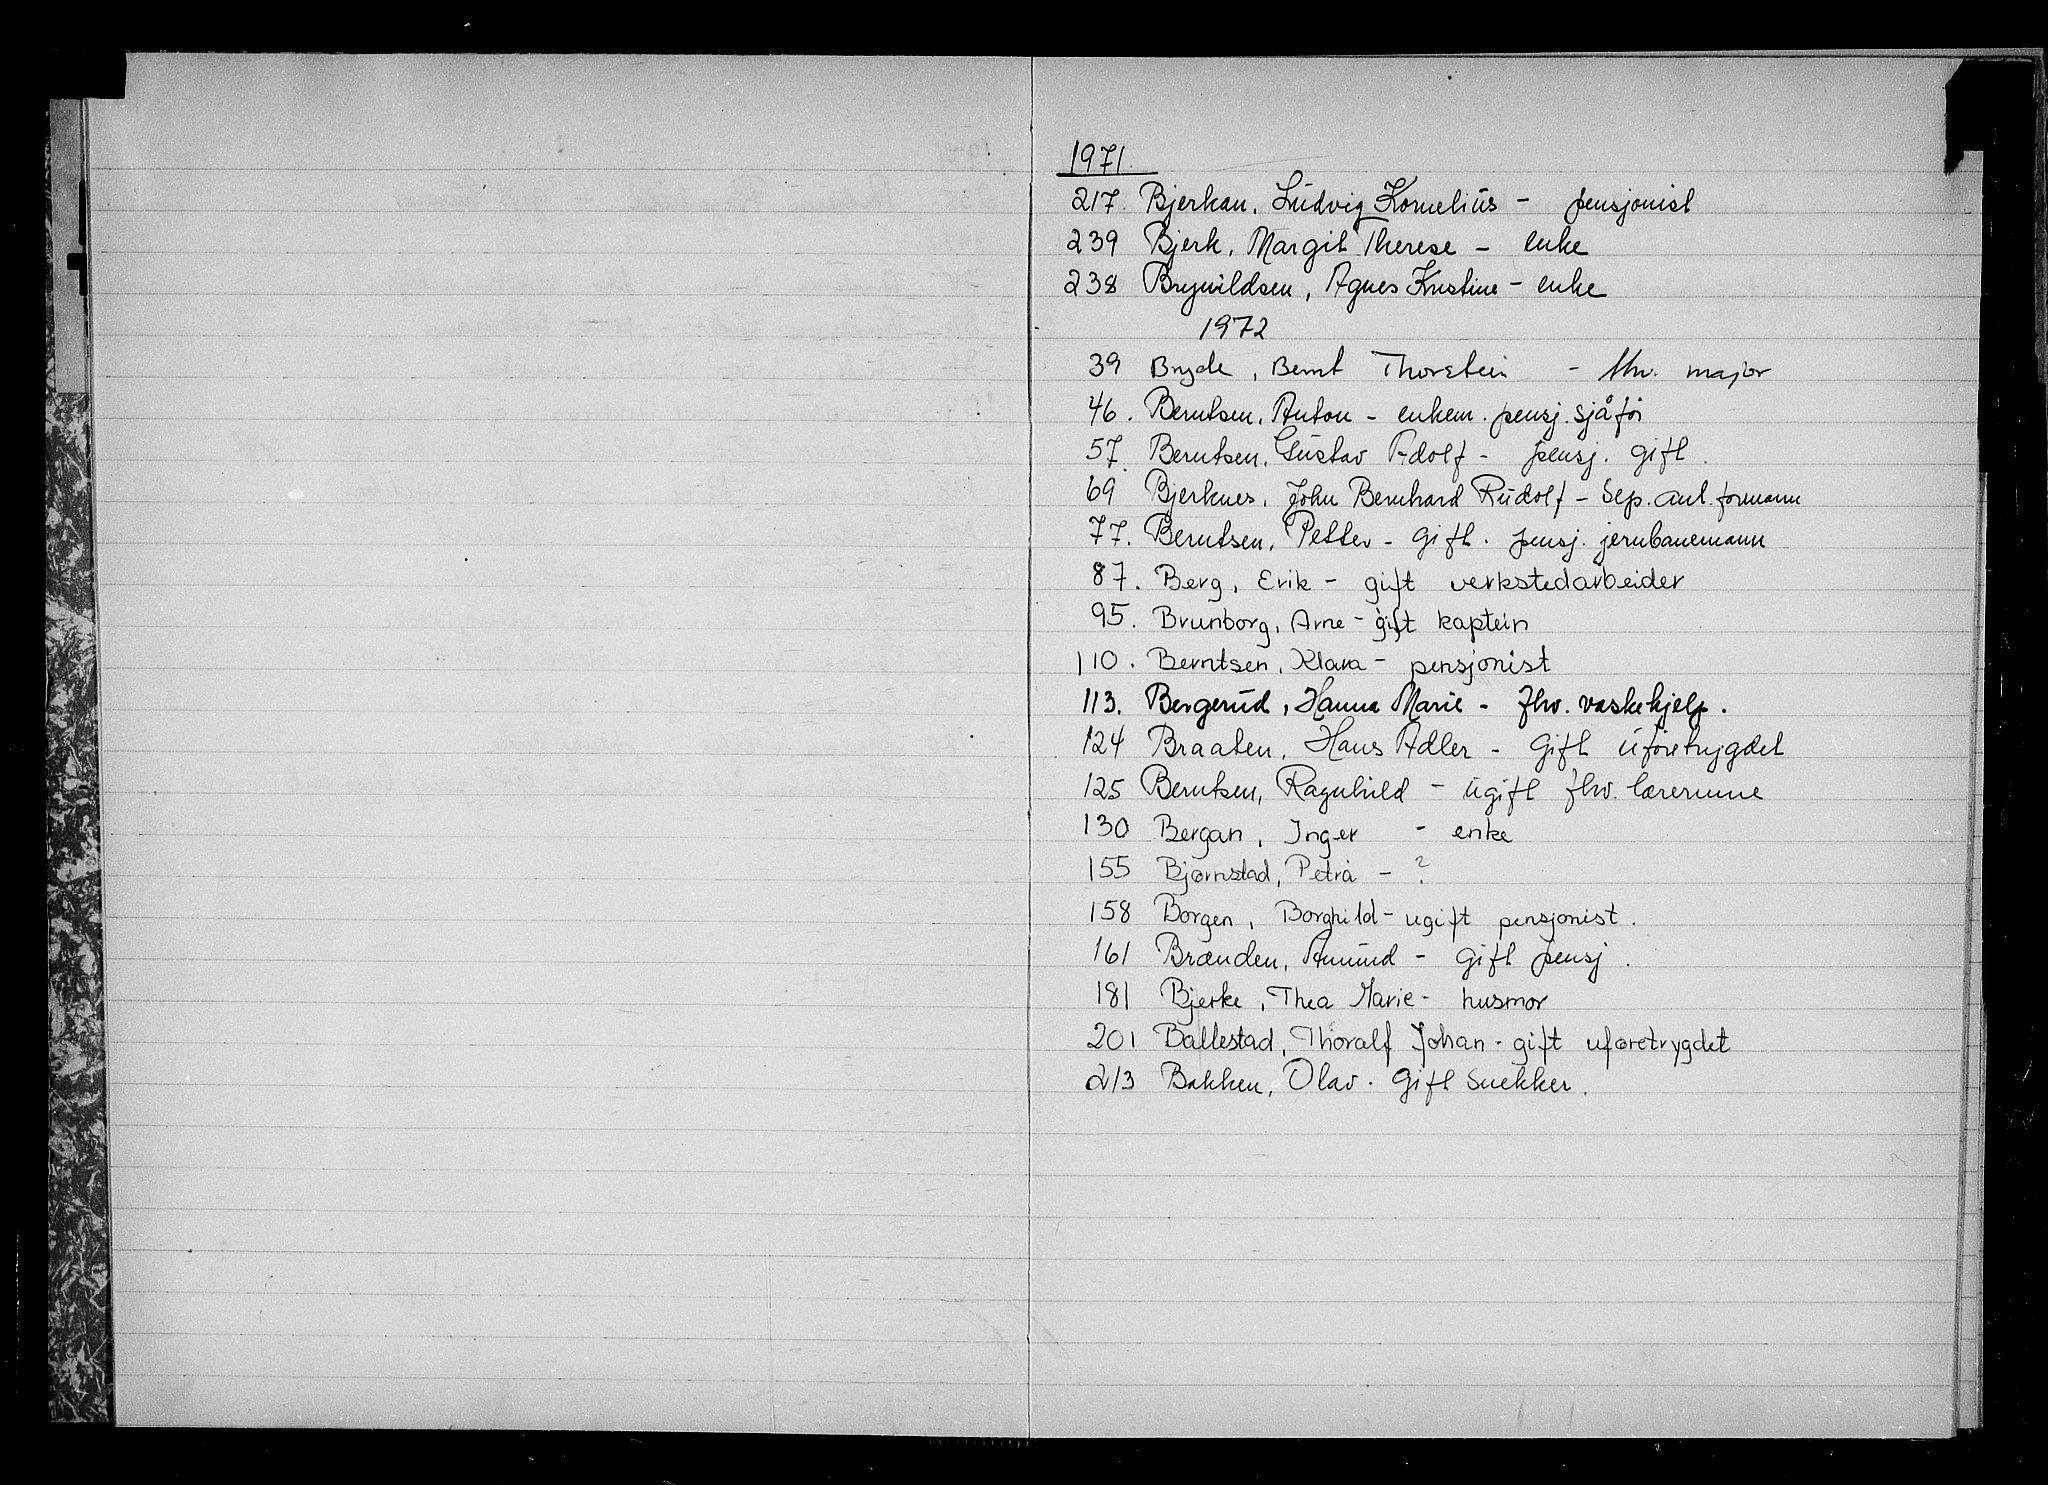 1971.
217. Bjerkan, Ludvig Kornelius - pensjonist
239 Bjerk, Margit Therese - enke
238 Brynildsen, Agnes Kristine - enke
1972
39 Bryde, Bernt Thorstein - fhv. major
46. Berntsen, Anton - enkem. pensj. sjåfør
57. Berntsen, Gustav Adolf - pensj. gift.
69 Bjerknes, John Bernhard Rudolf - Sep. anl. formann
77. Berntsen, Petter - gift. pensj. jernbanemann
87. Berg, Erik - gift verkstedarbeider
95. Brunborg, Arne - gift kaptein
110. Berntsen, Klara - pensjonist
113. Bergerud, Hanna Marie - fhv. vaskehjelp.
124 Braaten, Hans Adler - Gift uføretrygdet
125 Berntsen, Ragnhild - ugift fhv. lærerinne
130 Bergan, Inger - enke
155 Bjørnstad, Petra - ?
158 Borgen, Borghild - ugift pensjonist.
161 Brænden, Amund - gift pensj.
181 Bjerke, Thea Marie - husmor
201 Ballestad, Thoralf Johan - gift uføretrygdet
213 Bakken, Olav. Gift Snekker.